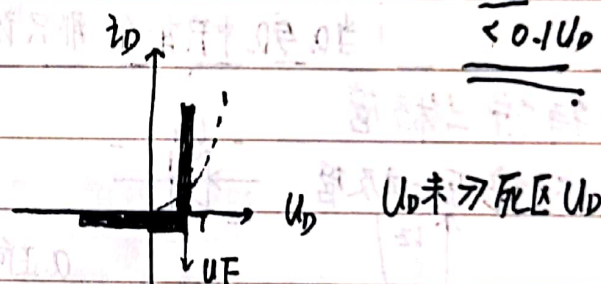 i_D
< 0.1U_D
U_D
U_D未≫死区U_D
U_F